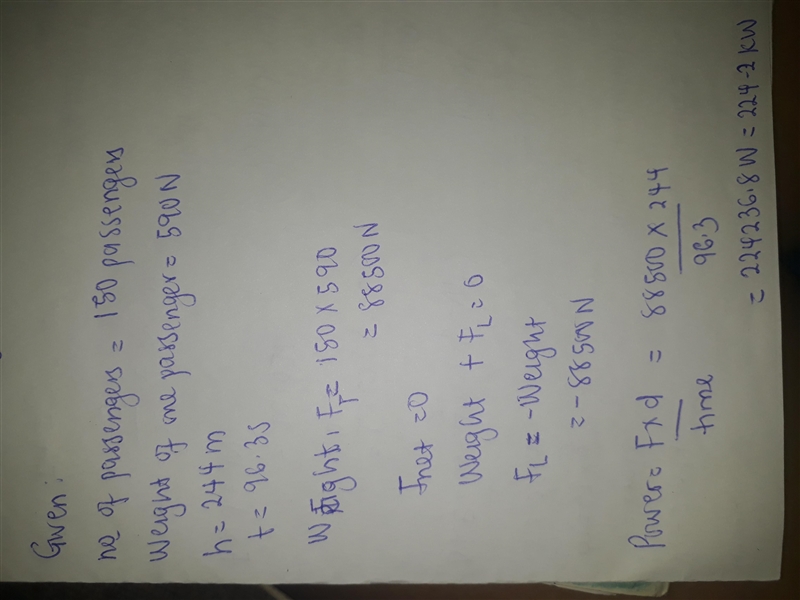 Given:
no of passengers = 150 passengers
Weight of one passenger = 590N
h = 244m
t = 96.3s
Weight, F_T = 150 x 590
= 88500N
Fnet = 0
Weight + F_L = 0
F_L = -Weight
= -88500N
Power = F x d / time = 88500 x 244 / 96.3
= 224236.8W = 224.2KW